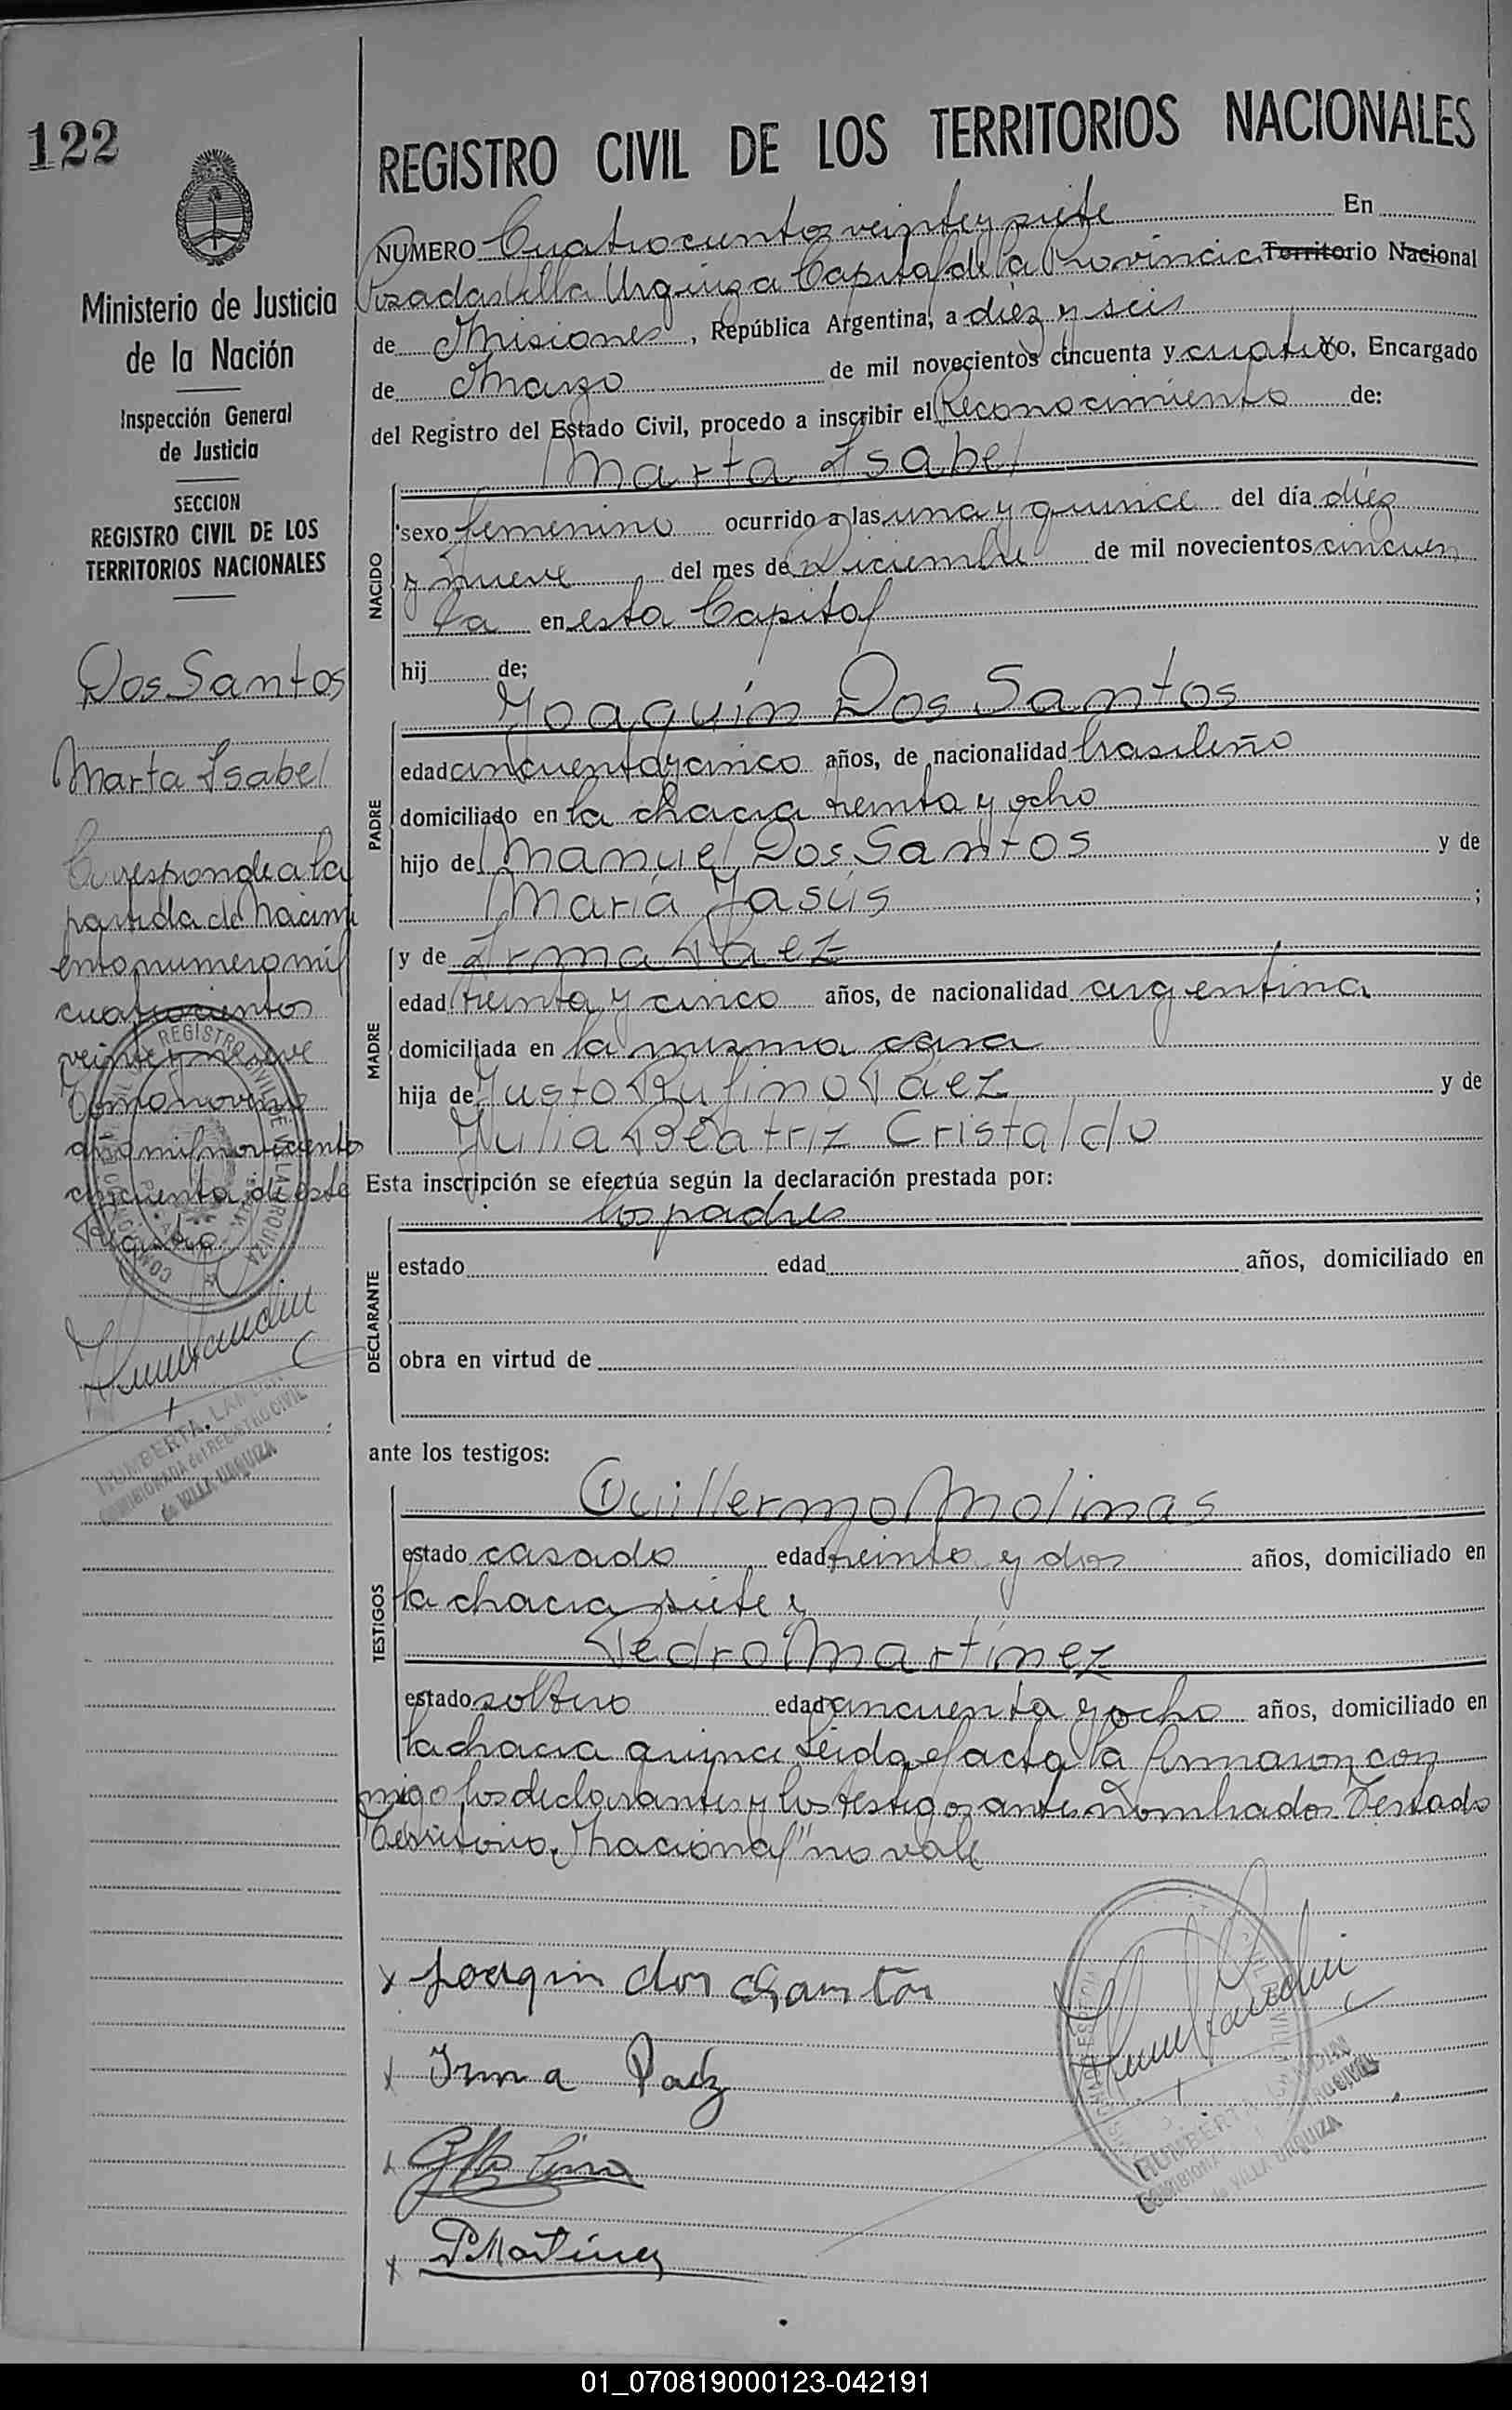 122
REGISTRO CIVIL DE LOS TERRITORIOS NACIONALES
Ministerio de Justicia
de la Nación
Inspección General
de Justicia
SECCION
REGISTRO CIVIL DE LOS
TERRITORIOS NACIONALES
Dos Santos
Marta Isabel
Corresponde a la
partida de Nacimi
ento numero mil
cuatrocientos
veinte y nueve
Tomo noveno
año mil novecientos
cincuenta de este
Registro
HUMBERTA
COMISIONADA del REGISTRO CIVIL
de VILLA URQUIZA
NUMERO Cuatrocientos veinte y siete En
Posadas Villa Urquiza Capital de la Provincia Territorio Nacional
de Misiones, República Argentina, a diez y seis
de Marzo de mil novecientos cincuenta y cuatro Yo, Encargado
del Registro del Estado Civil, procedo a inscribir el Reconocimiento de:
Marta Isabel
NACIDO
sexo femenino ocurrido a las una y quince del día diez
y nueve del mes de Diciembre de mil novecientos cincuen
ta en esta Capital
hij de;
Joaquín Dos Santos
PADRE
edad cincuenta y cinco años, de nacionalidad brasileño
domiciliado en la chacra treinta y ocho
hijo de Manuel Dos Santos y de
María Jasús ;
MADRE
y de Irma Páez
edad treinta y cinco años, de nacionalidad argentina
domiciliada en la misma casa
hija de Justo Rufino Páez y de
Julia Beatriz Cristaldo
Esta inscripción se efectúa según la declaración prestada por:
los padres
DECLARANTE
estado edad años, domiciliado en
obra en virtud de
ante los testigos:
Guillermo Molinas
TESTIGOS
estado casado edad treinta y dos años, domiciliado en
la chacra siete y
Pedro Martínez
estado soltero edad cincuenta y ocho años, domiciliado en
la chacra quince Leida el acta la firmaron con
migo los declarantes y los testigos antes nombrados. Testado
"Territorio Nacional" no vale
x Joaquin dos Santos
x Irma Paéz
x
x P Martínez
HUMBERTA LANDIN
COMISIONADA REGISTRO CIVIL
de VILLA URQUIZA
01_070819000123-042191